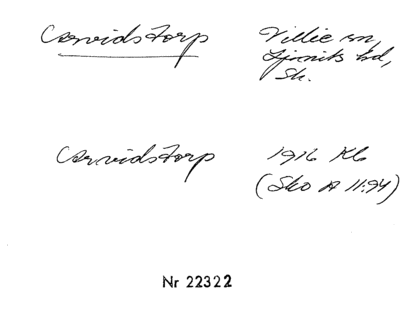 Corvidstorp
Villie sn,
Ljunits hd,
Sk.
Corvidstorp
1916 Kb
(Sko A 11:94)
Nr 22322